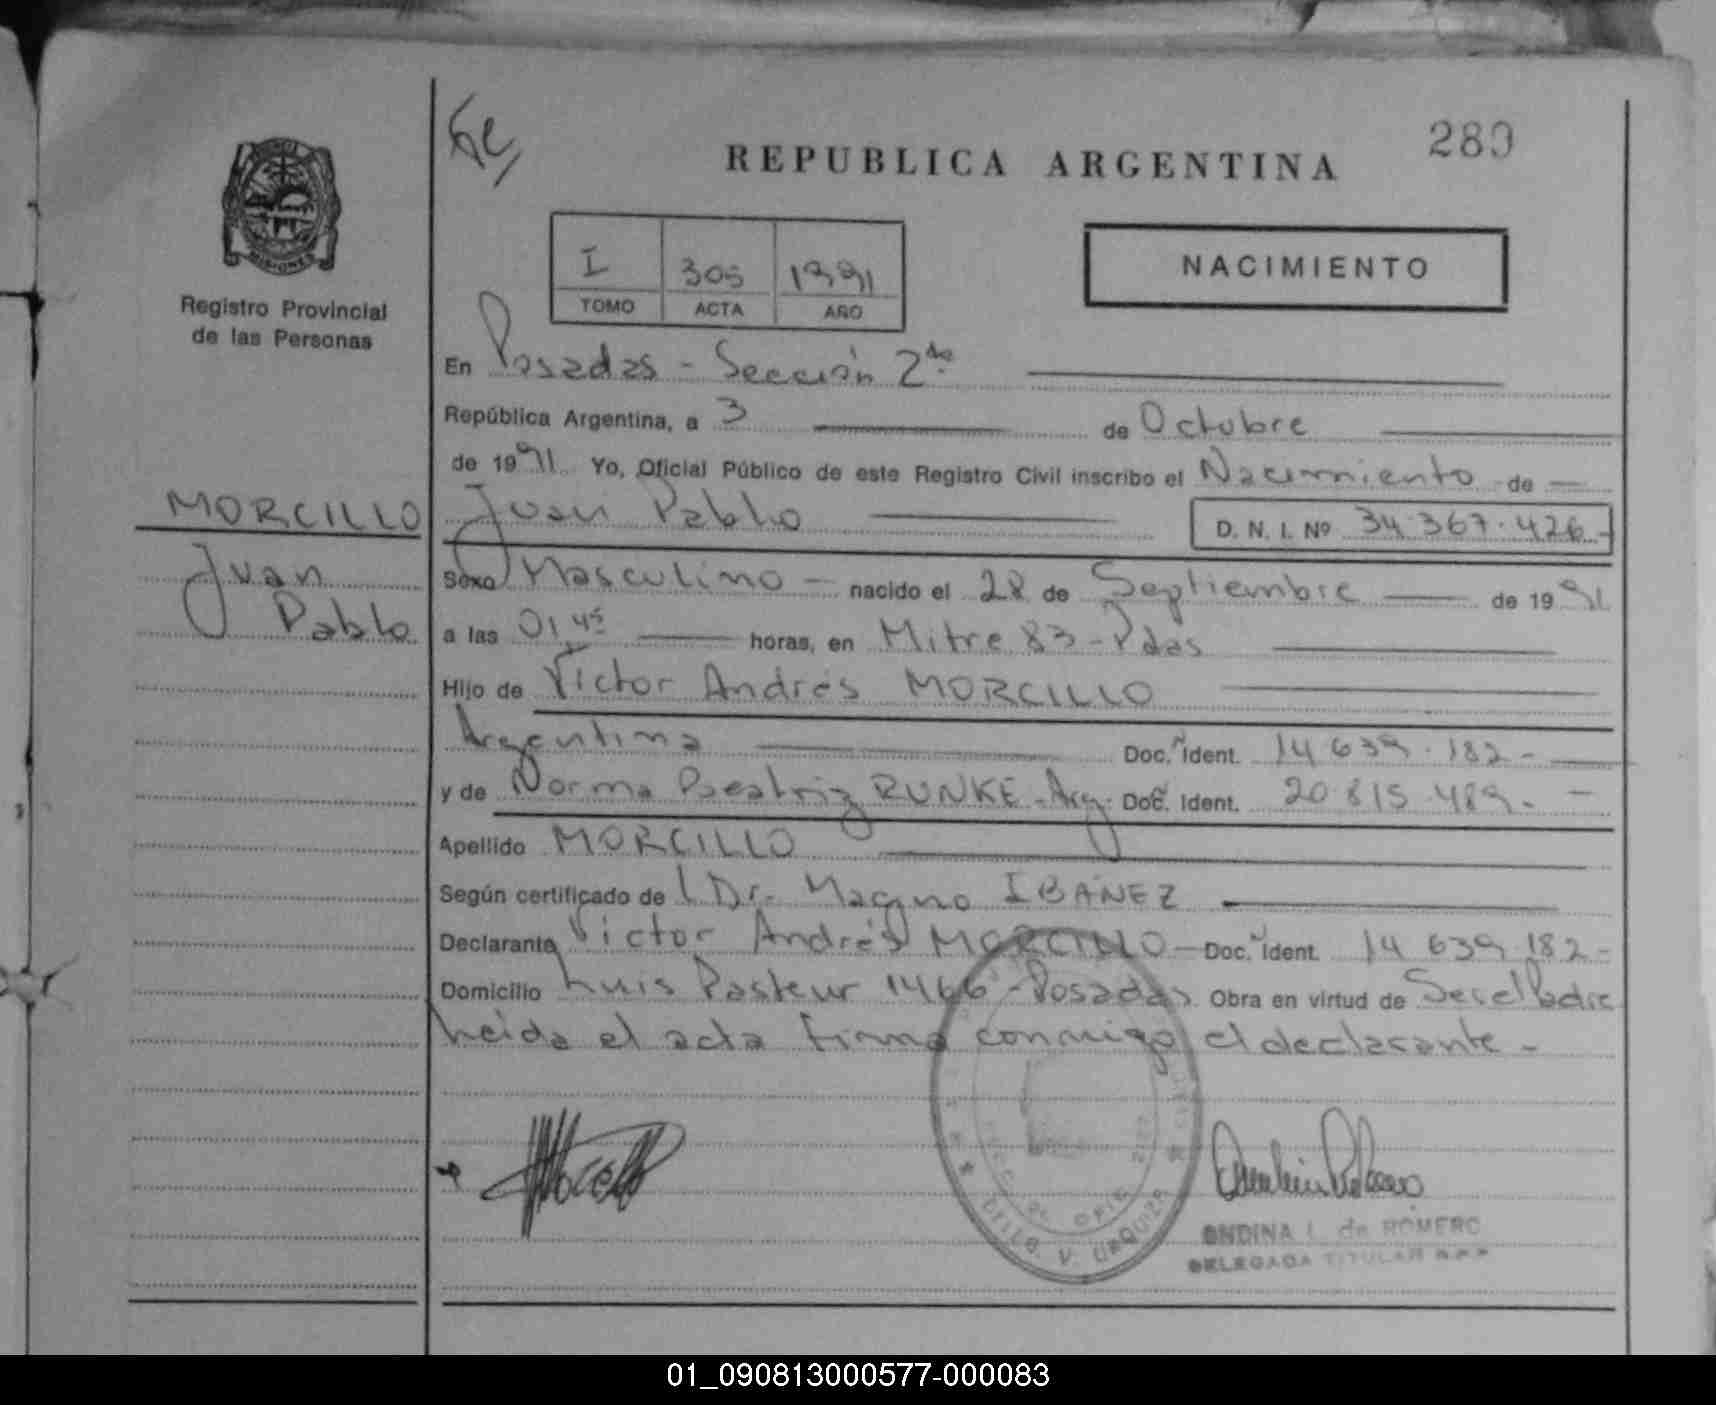 289
REPUBLICA ARGENTINA
I 305 1991
TOMO ACTA AÑO
NACIMIENTO
MISIONES
Registro Provincial
de las Personas
En Posadas - Sección 2da
República Argentina, a 3 de Octubre
de 1991 Yo, Oficial Público de este Registro Civil inscribo el Nacimiento de
MORCILLO
Juan Pablo D. N. I. Nº 34.367.426.-
Juan
Pablo
Sexo Masculino - nacido el 28 de Septiembre de 1991
a las 01,45 horas, en Mitre 83 - Pdas
Hijo de Víctor Andrés MORCILLO
Argentina Doc. Ident. 14.639.182 -
y de Norma Beatriz RUNKE - Arg. Doc. Ident. 20.815.489. -
Apellido MORCILLO
Según certificado de l Dr. Magno IBAÑEZ
Declarante Víctor Andrés MORCILLO - Doc. Ident. 14.639.182 -
Domicilio Luis Pasteur 1466 - Posadas Obra en virtud de Ser el Padre
Leída el acta firma conmigo el declarante -
DELEG. V. URQUIZA
ONDINA L. de ROMERO
DELEGADA TITULAR
01_090813000577-000083